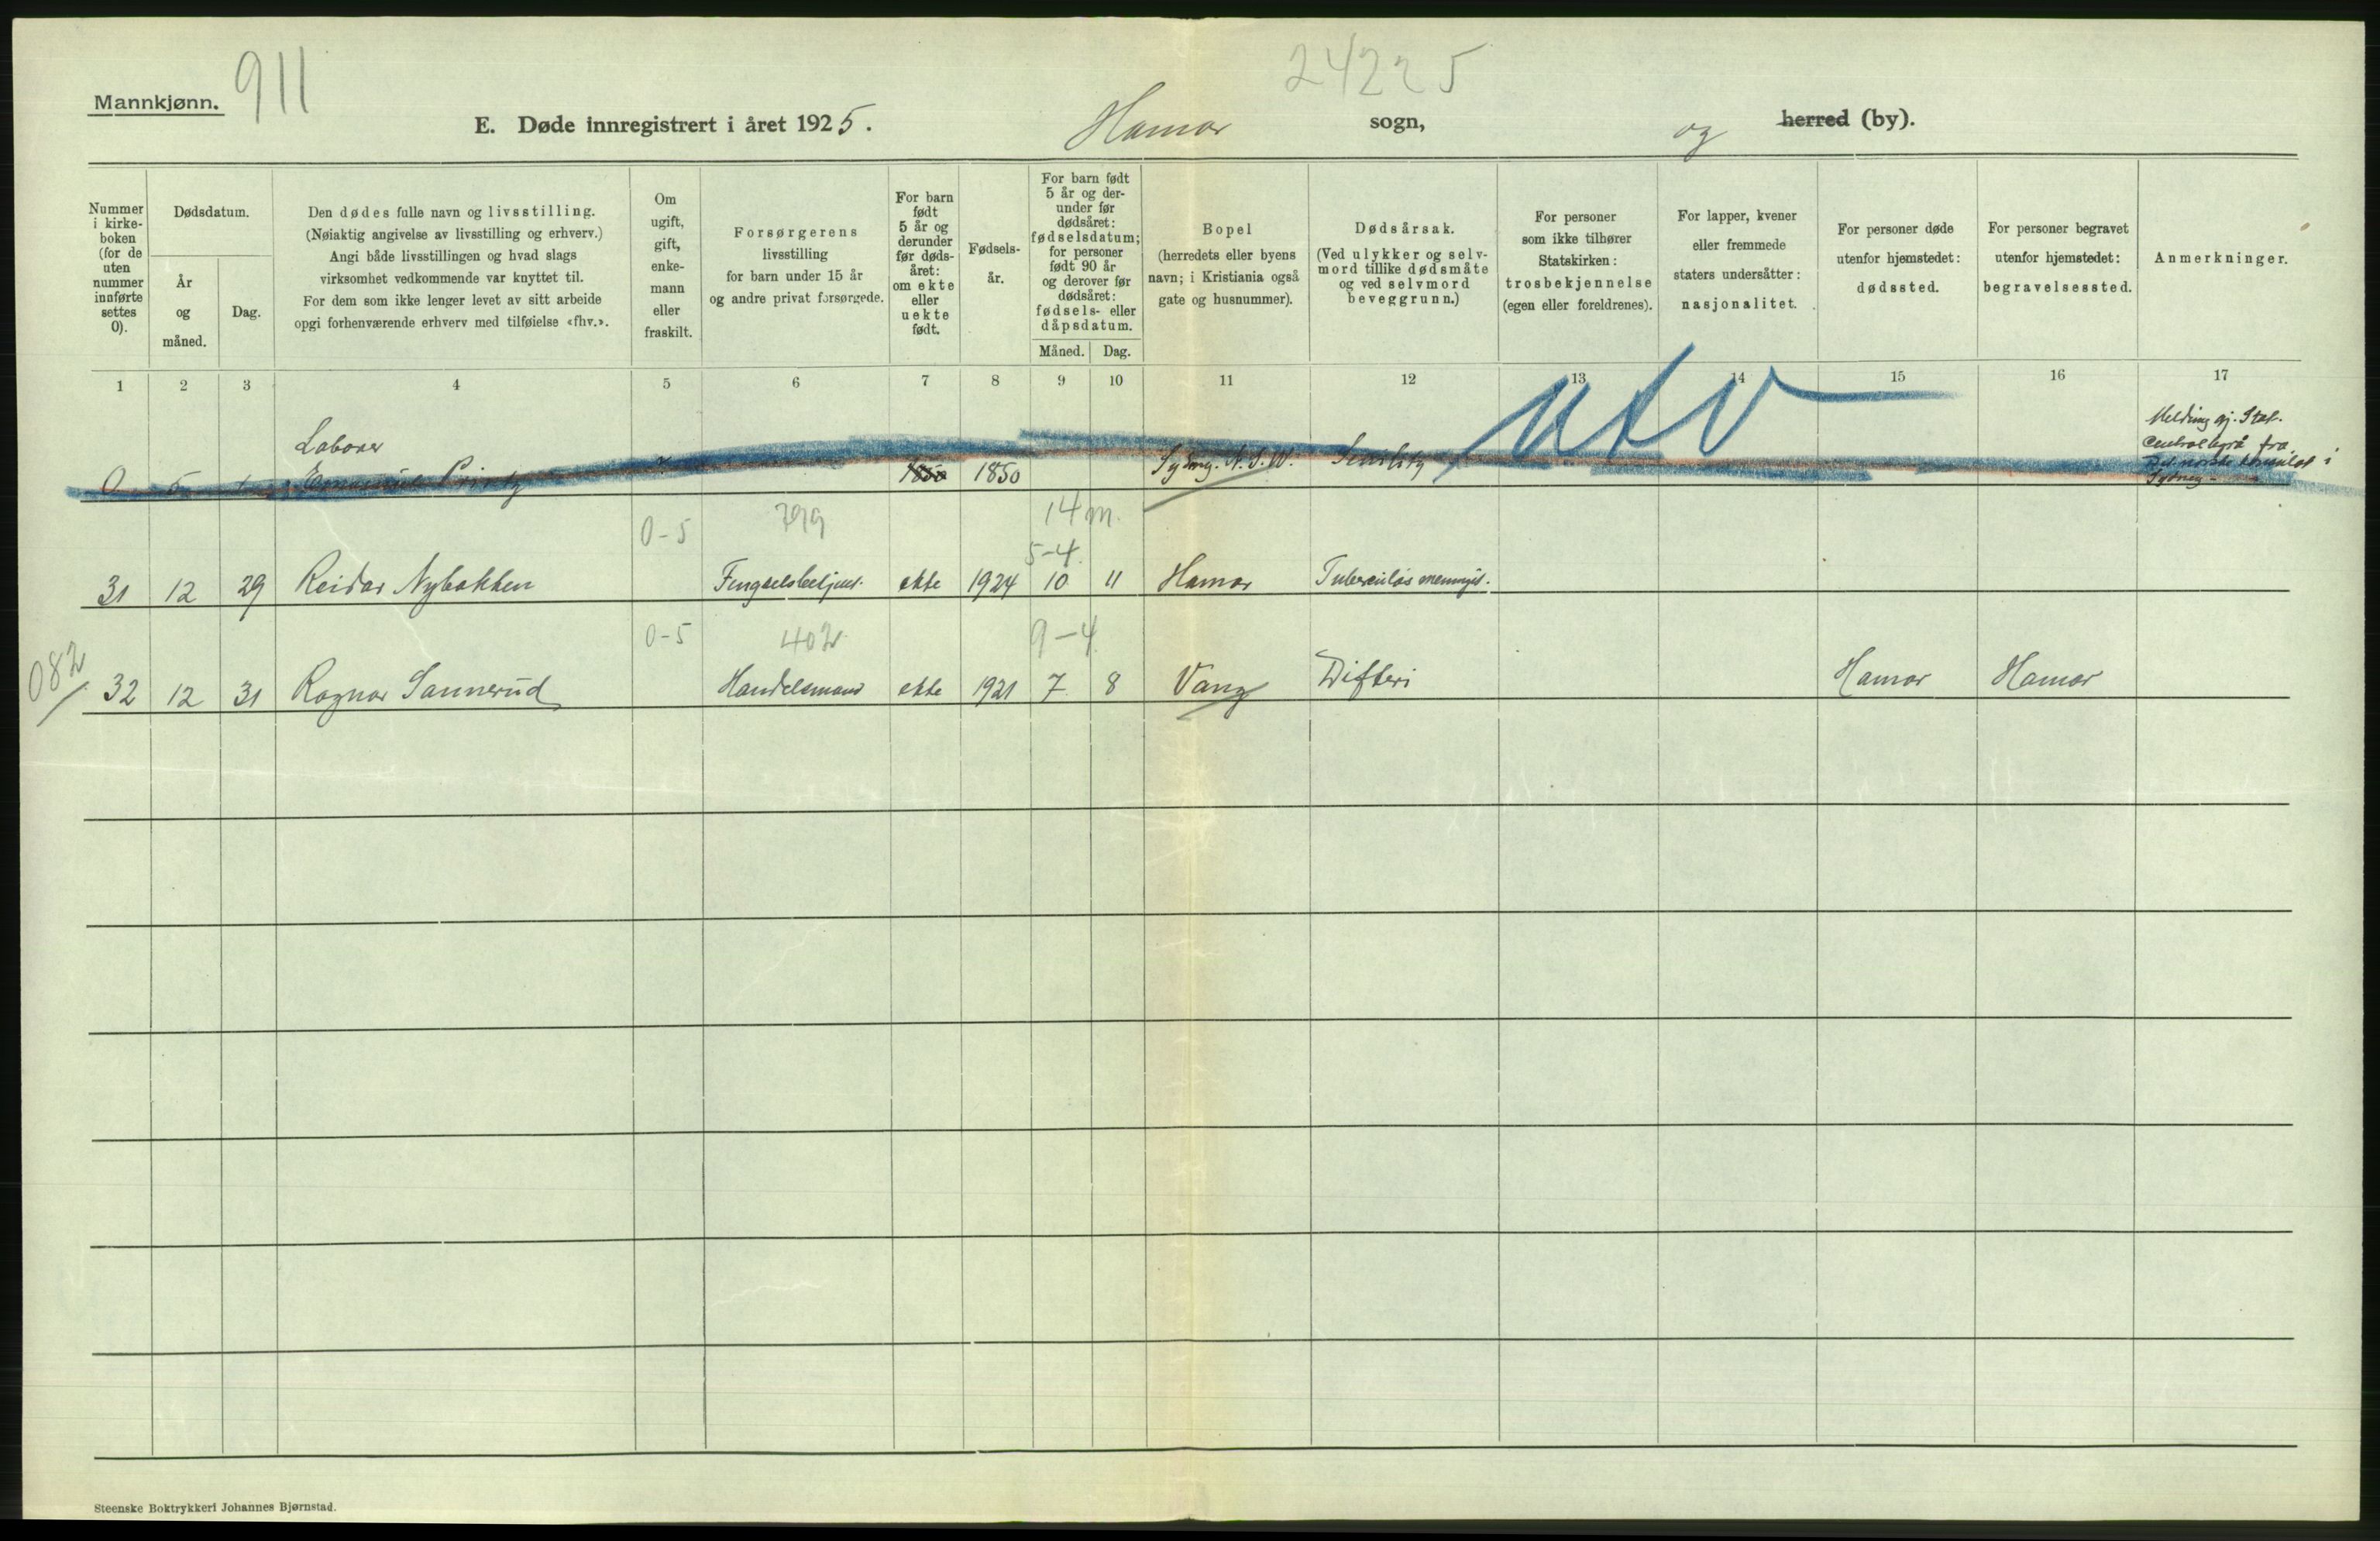 Mannkjønn.
911
24225
E. Døde innregistrert i året 1925.
Hamar sogn,
og herred (by).
Nummer i kirke- boken (for de uten nummer innførte settes 0).
Dødsdatum.
År og måned.
Dag.
Den dødes fulle navn og livsstilling.
(Nøiaktig angivelse av livsstilling og erhverv.)
Angi både livsstillingen og hvad slags
virksomhet vedkommende var knyttet til.
For dem som ikke lenger levet av sitt arbeide
opgi forhenværende erhverv med tilføielse «fhv.».
Om ugift, gift, enke- mann eller fraskilt.
Forsørgerens
livsstilling
for barn under 15 år
og andre privat forsørgede.
For barn født 5 år og derunder før døds- året: om ekte eller uekte født.
Fødsels- år.
For barn født 5 år og der- under før dødsåret: fødselsdatum; for personer født 90 år og derover før dødsåret: fødsels- eller dåpsdatum.
Måned.
Dag.
Bopel
(herredets eller byens
navn; i Kristiania også
gate og husnummer).
Dødsårsak.
(Ved ulykker og selv-
mord tillike dødsmåte
og ved selvmord
beveggrunn.)
For personer
som ikke tilhører
Statskirken:
trosbekjennelse
(egen eller foreldrenes).
For lapper, kvener
eller fremmede
staters undersåtter:
nasjonalitet.
For personer døde
utenfor hjemstedet:
dødssted.
For personer begravet
utenfor hjemstedet:
begravelsessted.
Anmerkninger.
1 2 3 4 5 6 7 8 9 10 11 12 13 14 15 16 17
utv
Laborer
0 5 Printz 1850 1850 Sydney. N.S.W. Senility
Melding gj. Stat.
Centralbyrå fra
Det norske konsulat i
Sydney
0-5 799 14 m.
5-4
31 12 29 Reidar Nybakken Fengselsbetjent. ekte 1924 10 11 Hamar Tuberculøs meningit.
0-5 402 9-4
082
32 12 31 Ragnar Sannerud Handelsmand ekte 1921 7 8 Vang Difteri Hamar Hamar
Steenske Boktrykkeri Johannes Bjørnstad.